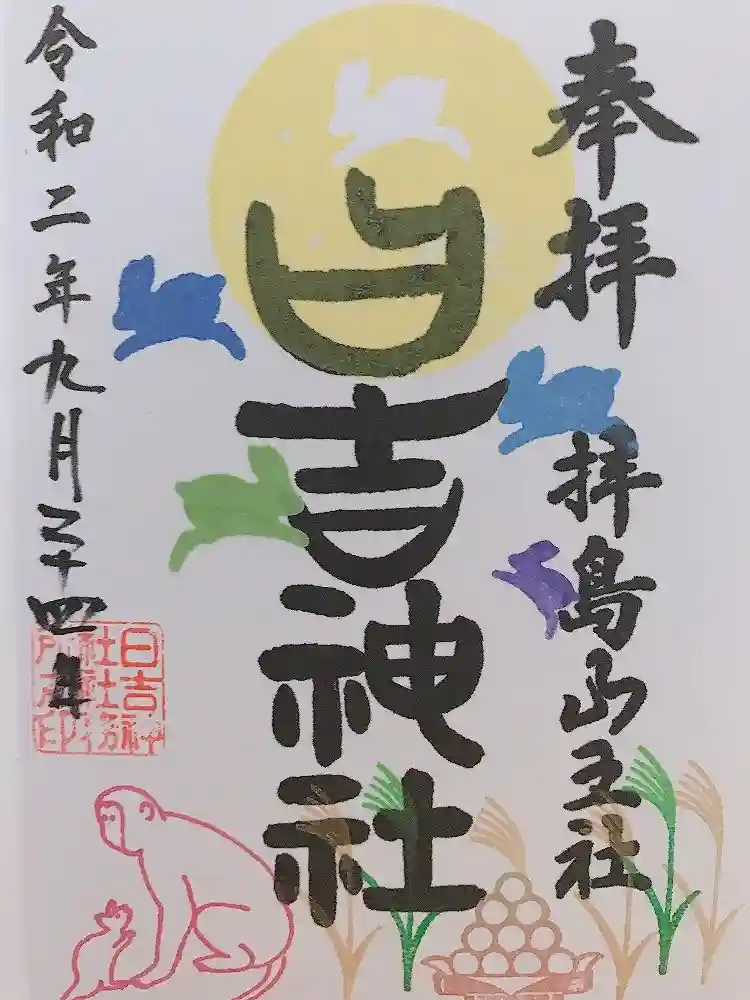 奉拝
拝島山王社
日吉神社
令和二年九月二十四日
日吉神
社社務
印